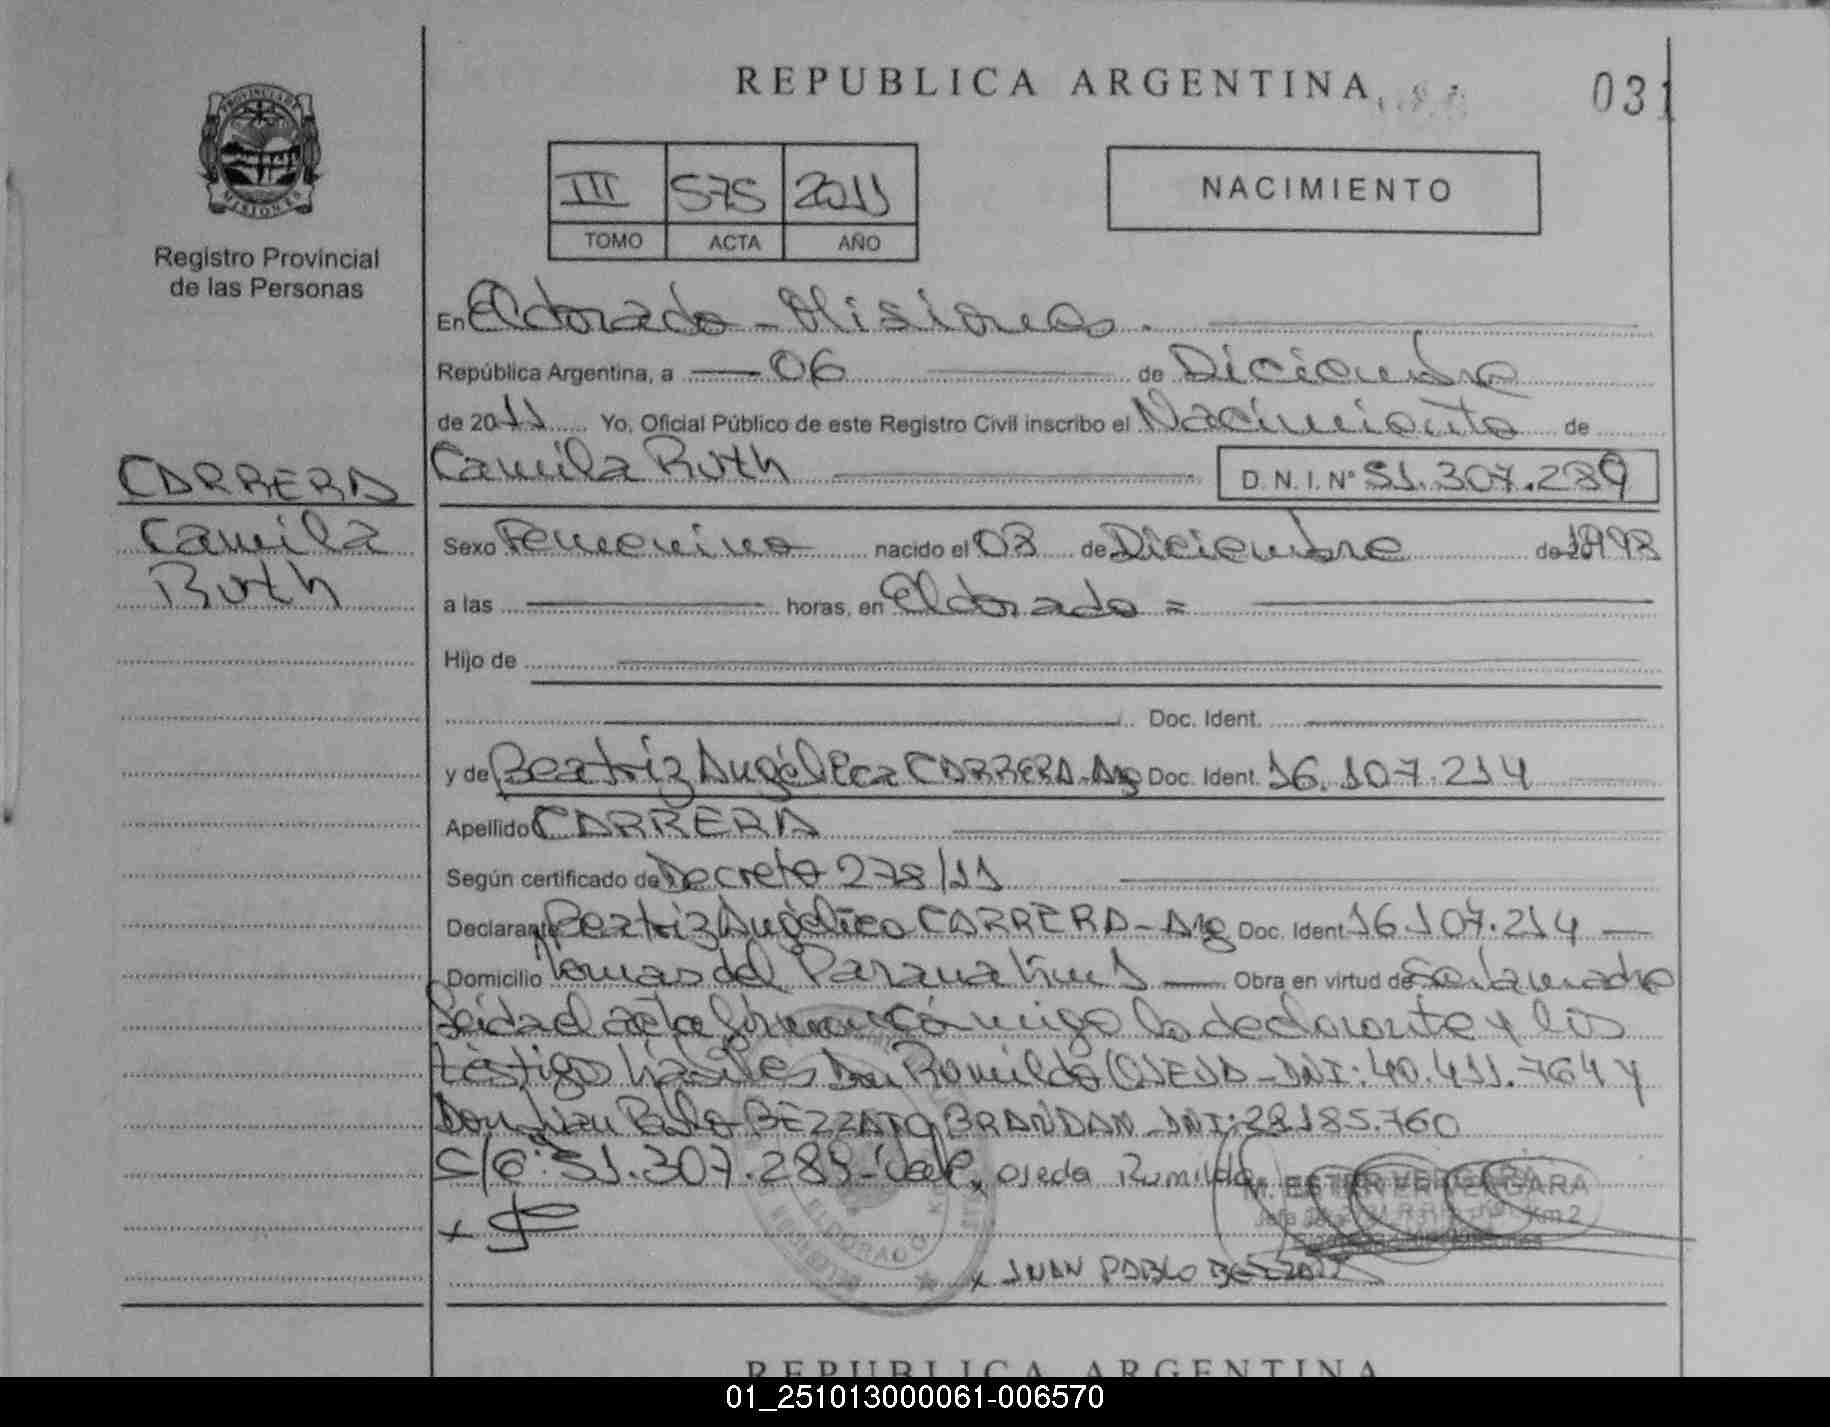 REPUBLICA ARGENTINA
031
PROVINCIA DE
MISIONES
Registro Provincial
de las Personas
III 575 2011
TOMO ACTA AÑO
NACIMIENTO
En Eldorado - Misiones.
República Argentina, a 06 de Diciembre
de 2011 Yo, Oficial Público de este Registro Civil inscribo el Nacimiento de
Camila Ruth D.N.I. Nº 51.307.289
CARRERA
Camila
Ruth
Sexo Femenino nacido el 03 de Diciembre de 1998
a las horas, en Eldorado =
Hijo de
Doc. Ident.
y de Beatriz Angélica CARRERA - Arg Doc. Ident. 16.107.214
Apellido CARRERA
Según certificado de Decreto 278/11
Declarante Beatriz Angélica CARRERA - Arg Doc. Ident 16.107.214
Domicilio Lomas del Parana Km 1 Obra en virtud de Ser la madre
Leída el acta firman conmigo la declarante y los
testigo hábiles Don Romildo OJEDA - DNI: 40.411.764 y
Don Juan Pablo BEZZATO BRANDAN - DNI: 28.185.760
C/E: 51.307.289 - Vale. x Ojeda Rumildo
M. ESTER VERGARA
ELDORADO
x
x JUAN PABLO BEZZATO
REPUBLICA ARGENTINA
01_251013000061-006570